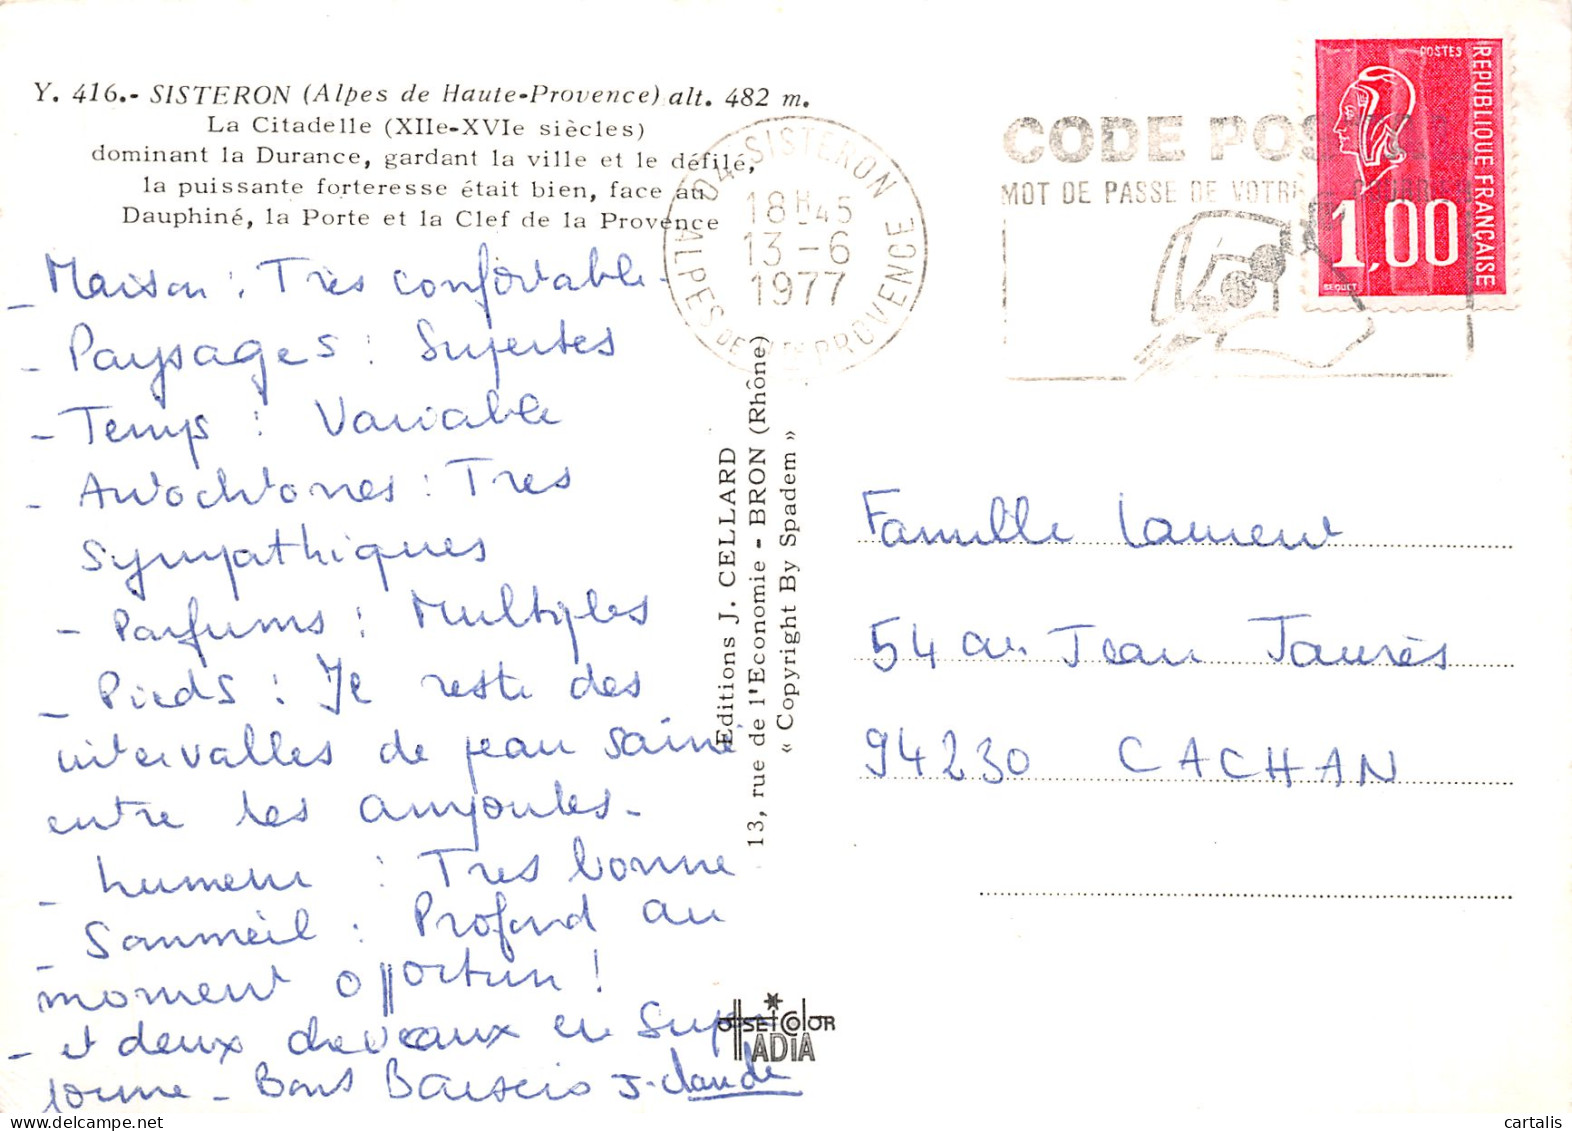 Y. 416.- SISTERON (Alpes de Haute-Provence) alt. 482 m.
La Citadelle (XIIe-XVIe siècles)
dominant la Durance, gardant la ville et le défilé,
la puissante forteresse était bien, face au
Dauphiné, la Porte et la Clef de la Provence
- Maison : Très confortable -
- Paysages : Superbes
- Temps : Variable
- Autochtones : Tres
sympathiques
- Parfums : Multiples
- Pieds : Je reste des
intervalles de peau saine
entre les ampoules -
- humeur : Tres bonne
- Sommeil : Profond au
moment opportun !
- et deux chevaux en super
forme - Bons Baisers J-Claude
04 SISTERON
18H45
13-6
1977
ALPES DE HTE PROVENCE
CODE POS
MOT DE PASSE DE VOTRE COURRIER
POSTES
REPUBLIQUE FRANÇAISE
1,00
BEQUET
Editions J. CELLARD
13, rue de l'Economie - BRON (Rhône)
« Copyright By Spadem »
Famille Laurent
54 av. Jean Jaurès
94230 CACHAN
OFFSET COLOR
IADIA
cartalis